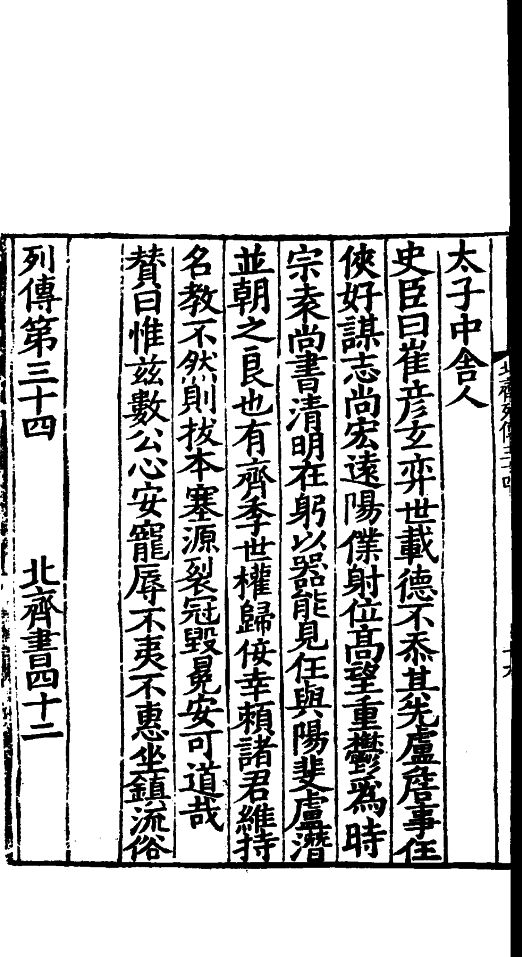 太子中舎人
史臣曰崔彦玄弈世載德不忝其先盧詹事任
俠好謀志尚宏遠陽僕射位髙望重鬱爲時
宗袁尚書清明在躬以器能見任與陽斐盧潛
並朝之良也有齊季世權歸佞幸頼諸君維持
名教不然則拔本塞源裂冠毀冕安可道哉
賛曰惟兹數公心安寵辱不夷不惠坐鎮流俗
列傳第三十四　北齊書四十二